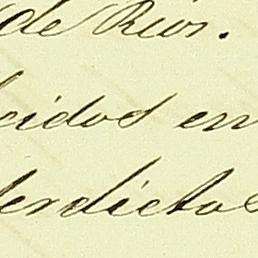 de Rios.
cidos en
terdictos